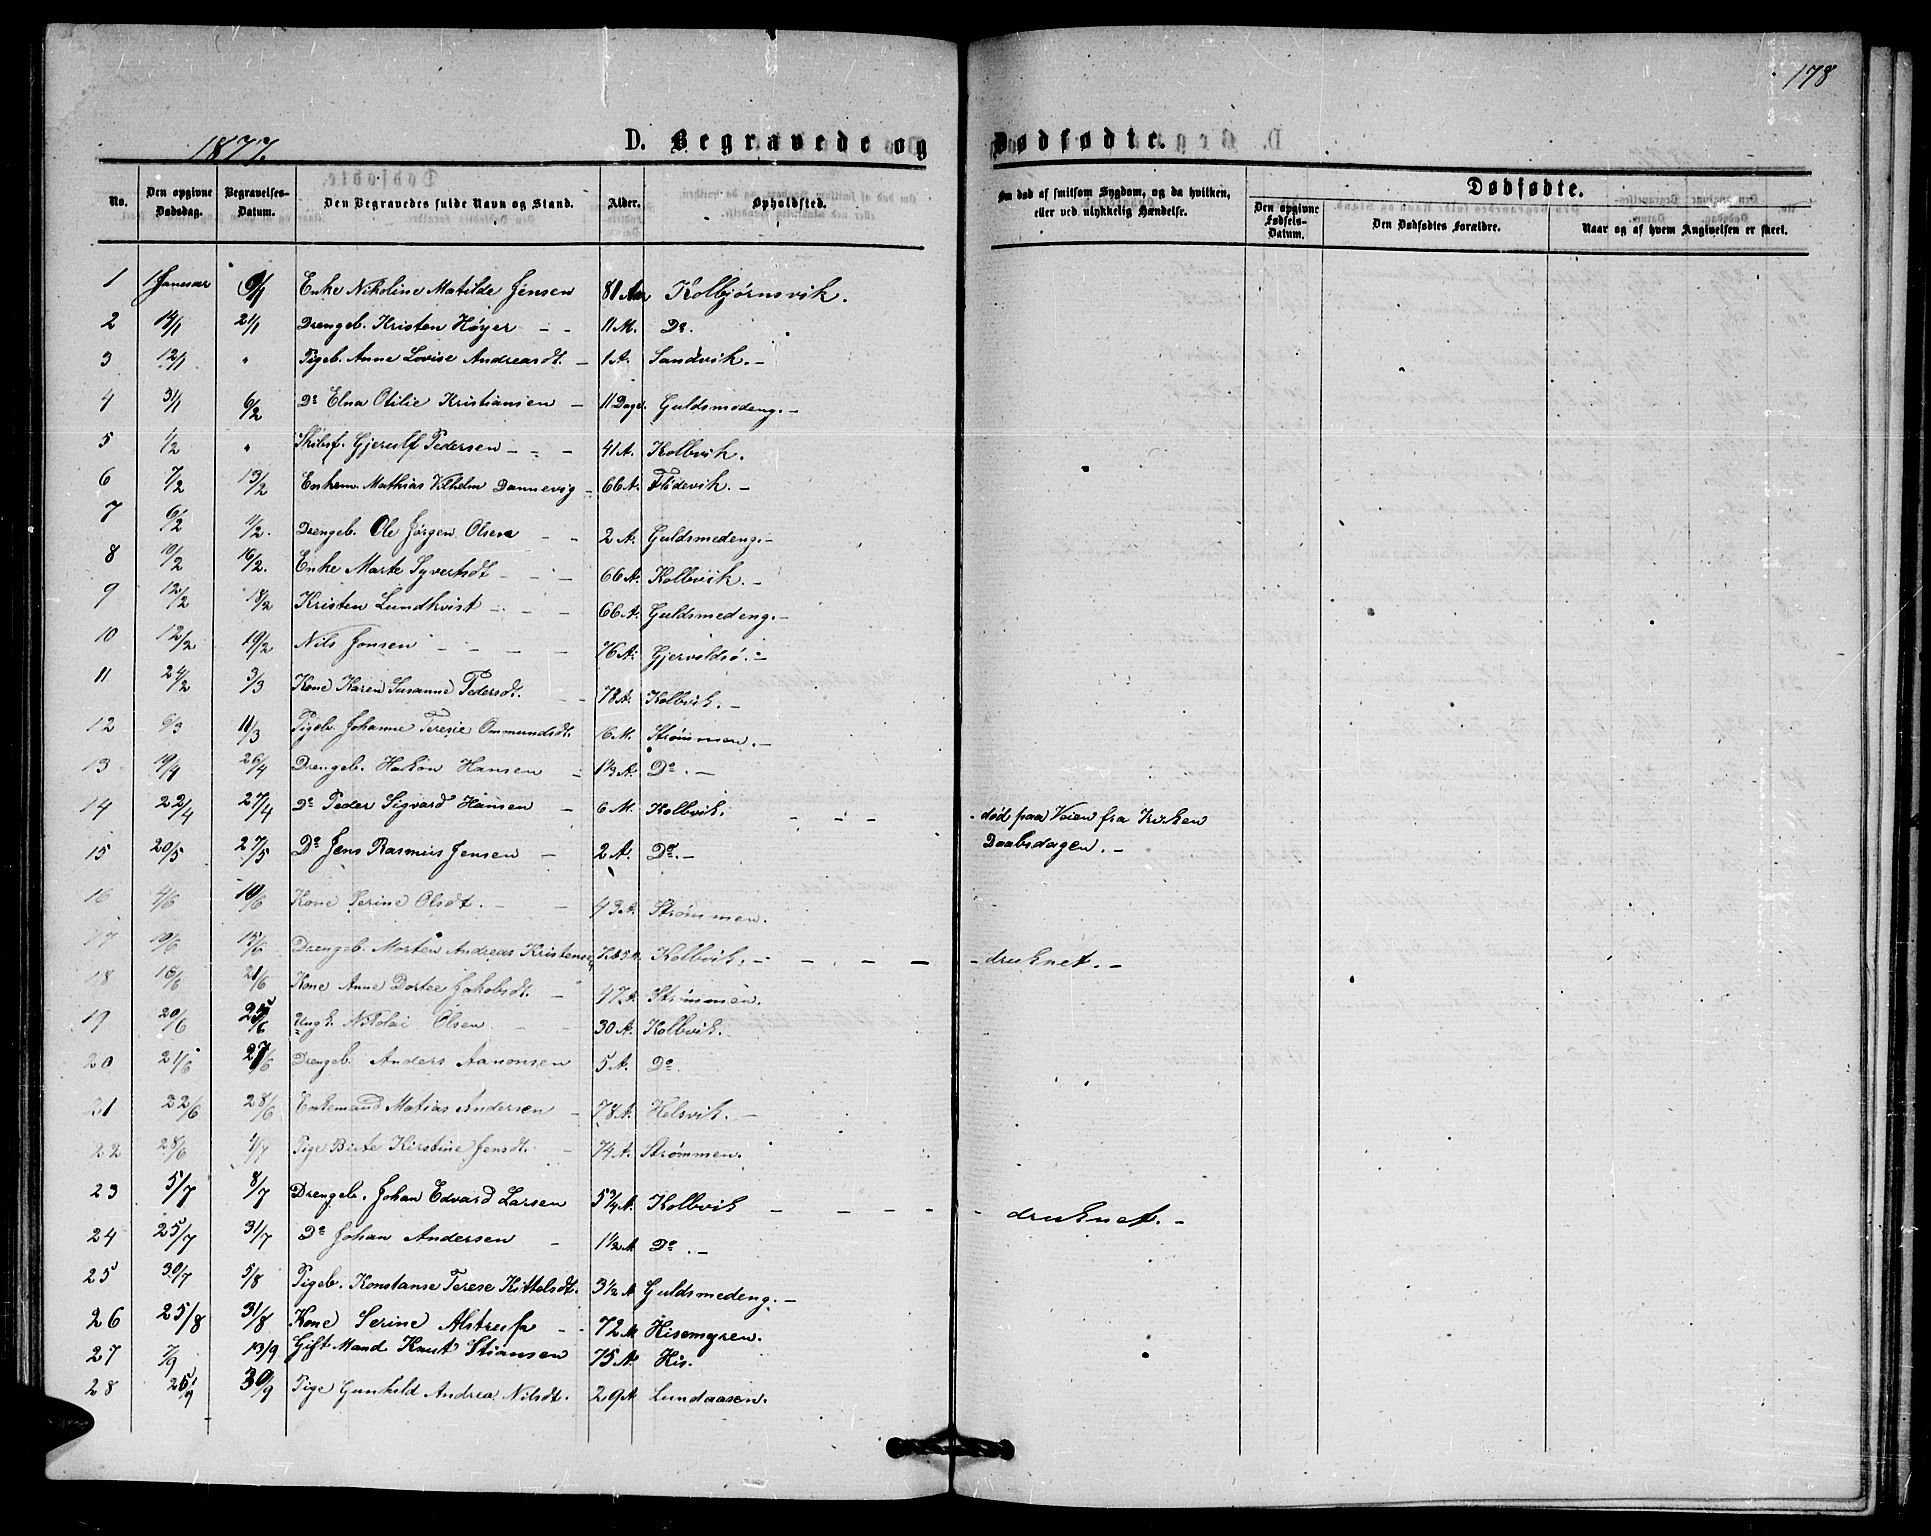 178
1877.
D. Begravede og Dødfødte.
No. Den opgivne Dødsdag. Begravelses-Datum. Den Begravedes fulde Navn og Stand. Alder. Opholdsted. Om død af smitsom Sygdom, og da hvilken, eller ved ulykkelig Hændelse. Dødfødte. Den opgivne Fødsels-Datum. Den Dødfødtes Forældre. Naar og af hvem Angivelsen er skeet.
1 1 Januar 6/1 Enke Nikoline Matilde Jensen 81 Aar Kolbjørnsvik.
2 14/1 21/1 Drengeb. Kristen Høyer - - 11 M. Do.
3 12/1 " Pigeb. Anne Lovise Andreasdt. - 1 A. Sandvik. -
4 31/1 6/2 Do Elna Otilie Kristiansen - 11 Dage. Guldsmedeng. -
5 1/2 " Skibsf. Gjerulf Pedersen - - - 41 A. Kolbvik.
6 7/2 13/2 Enkem. Mathias Vilhelm Dannevig - 66 A. Flødevik. -
7 6/2 11/2. Drengeb. Ole Jørgen Olsen - - 2 A. Guldsmedeng. -
8 10/2 16/2. Enke Marte Syvertsdt - - - 66 A. Kolbvik. -
9 12/2 18/2 Kristen Lundkvist - - - 66 A. Guldsmedeng. -
10 12/2 19/2 Nils Jonsen - - - - 76 A. Gjervoldsø. -
11 24/2 3/3 Kone Karen Susanne Pedersdt. - - 78 A. Kolbvik. -
12 6/3 11/3 Pigeb. Johanne Teresie Ommundsdt. 6 M. Strømmen. -
13 19/4 26/4 Drengeb. Hakon Hansen - 1 1/3 A. Do. -
14 22/4 27/4 Do Peder Sigvard Hansen - 6 M. Kolbvik. - - - - død paa Veien fra Kirken
15 20/5 27/5 Do Jens Rasmus Jensen - 2 A. Do. - Daabsdagen. -
16 4/6 10/6 Kone Serine Olsdt. - - 43 A. Strømmen.
17 10/6 15/6 Drengeb. Morten Andreas Kristensen Kolbvik. - - - - - druknet. -
18 16/6 21/6 Kone Anne Dortee Jakobsdt. - 47 A. Strømmen.
19 20/6 25/6 Ungk. Nikolai Olsen - - 30 A. Kolbvik.
20 21/6 27/6 Drengeb. Anders Aanonsen 5 A. Do.
21 22/6 28/6 Enkemand Matias Andersen - 78 A. Helsvik. -
22 28/6 4/7 Pige Birte Kirstine Jensdt. - 74 A. Strømmen.
23 5/7 8/7 Drengeb. Johan Edvard Larsen 5 3/4 A. Kolbvik - - - - - druknet. -
24 25/7 31/7 Do Johan Andersen - 1 1/2 A Do. -
25 30/7 5/8 Pigeb. Konstanse Terese Kittelsdt. 3 1/2 A Guldsmedeng. -
26 25/8 31/8 Kone Serine Alstrup - - 72 Hisemyren.
27 7/9 13/9 Gift Mand Knut Stiansen 75 A His.
28 25/9 30/9 Pige Gunhild Andrea Nilsdt. 29 A Lundaasen.